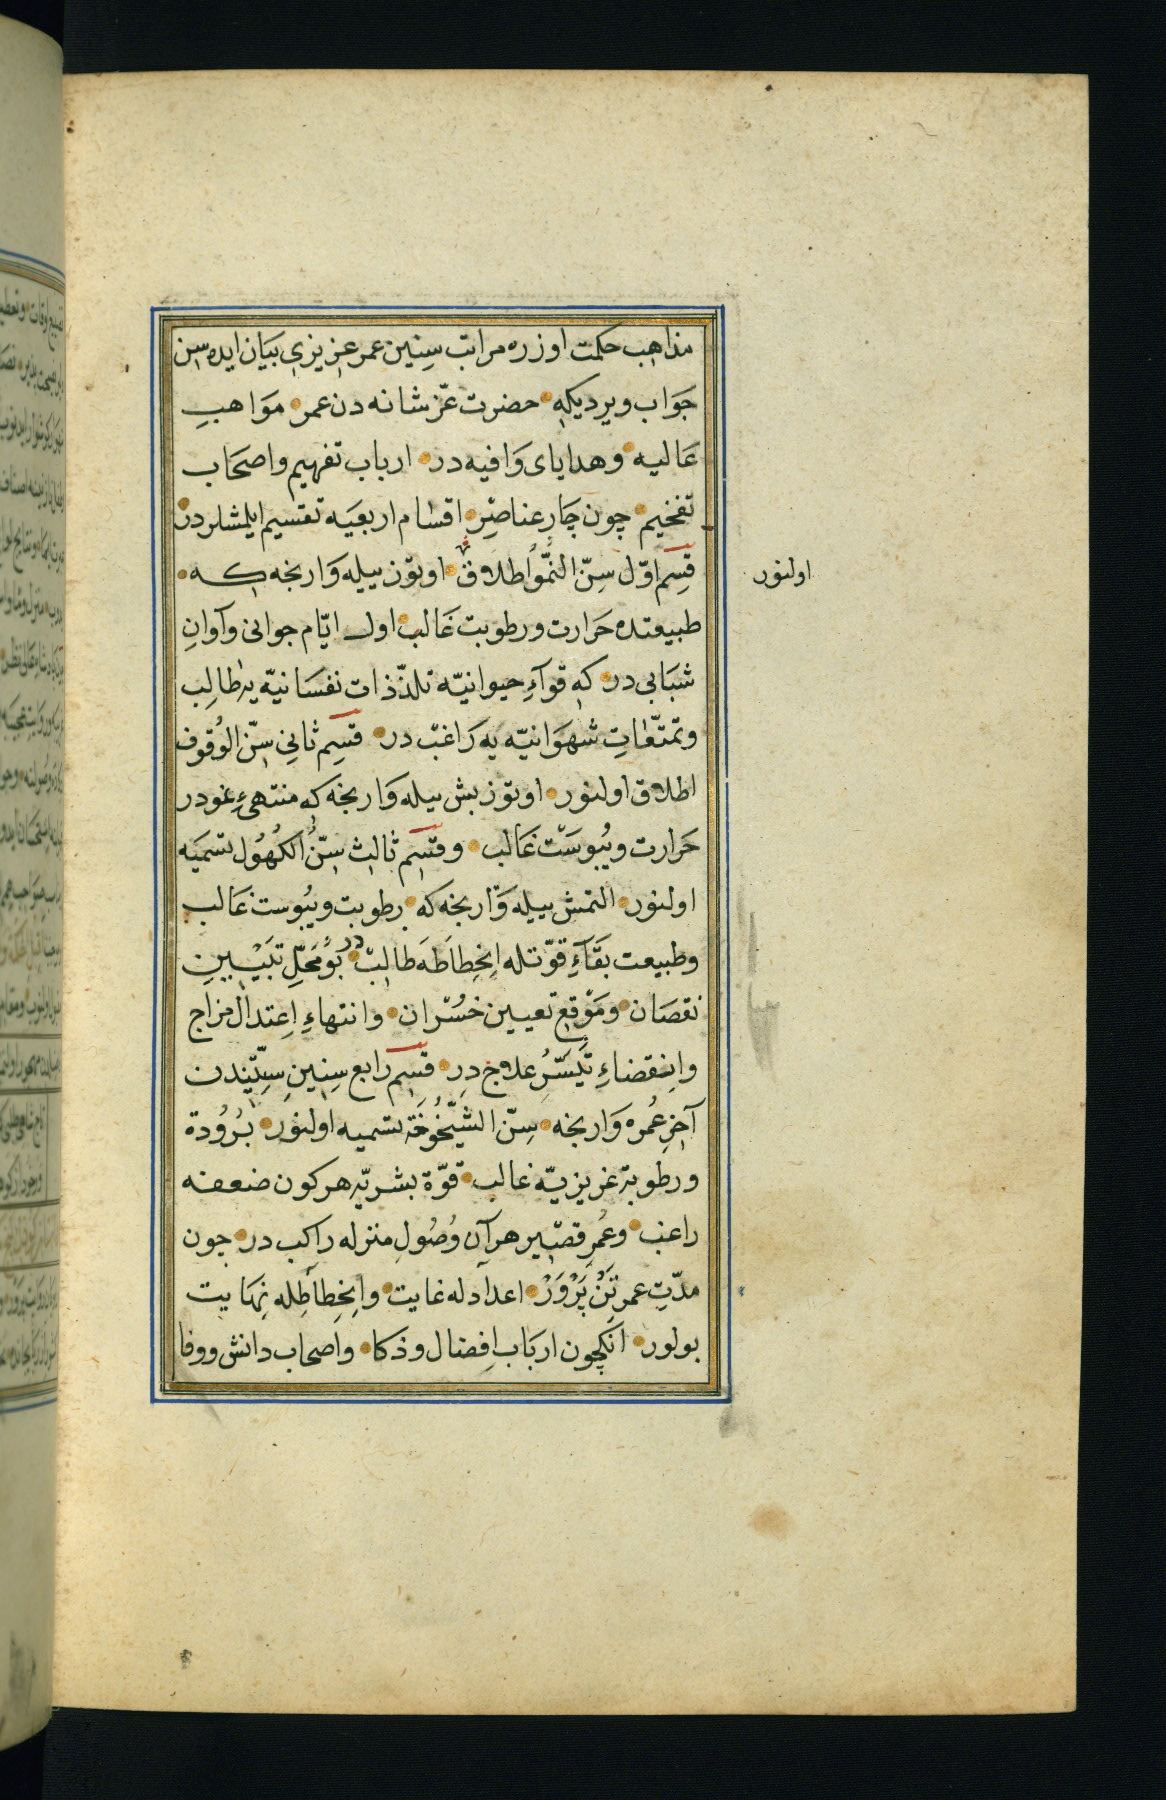 مذاهب حكمت اوزره مراتب سِنِين عمر عزيزى بيَان ايده سن
جَوَاب ويرديكه حضرت عزّ شانه دن عمر مَوَاهبِ
عَاليه وهداياى وَافيه در ارباب تفهيم واصحَاب
تفخيم چون چَارِ عناصِرِ اقسٰام اربعيَه تقسيم ايلمشلردر
قِسم اوّل سِنّ النُّموُّ اطلاق اوتوز ييله وَاريخه كه
اولنور
طبيعتده حَرارت ورطوبت غَالب اول ايّام جوانى وآوانِ
شبَابى در كه قوآءِ حيوانيّه تلذّذات نفسَانيّه يه طالِب
وتمتّعٰاتِ شهوَانيّه يه رَاغبْ در قسِم ثانِى سِنّ الوُقوف
اطلاق اولنور اوتوز بش ييله وَاريخه كه منتهىءِ نمودر
حَرارت ويُبوسَتْ غَالب وقسِم ثالث سِنُّ الكُهُول تسميَه
اولنور التمش ييله وَاريخه كه رطوبت ويبُوست غَالب
وطبيعت بقَآءِ قوّتله اِنحِطاطَه طَالبْ در بو مَحَلِّ تبَيْيِنِ
نقصَان ومَوْقِعِ تعيين خسُران وانتهاءِ اِعتدال مزاج
وانِقضاءِ تَيَسُّرُ علاج دِر قسِم رابع سِنِينِ سِتِّيندن
آخِرِ عُمره وَاريخه سِنّ الشَّيْخُوخَة تسميه اولنور برُودة
ورطوبة غريزيّه غالب قوّة بشريّه هر كون ضعفه
راغب وعُمرِ قصير هر آن وُصُولِ منزله راكب در چون
مدّتِ عمر تَنْ پَرْوَرْ اعدادله غايت وانِحِطاطِله نِهَايت
بولور انكچون اربَاب اِفضال وذكا واصحاب دانش ووفا